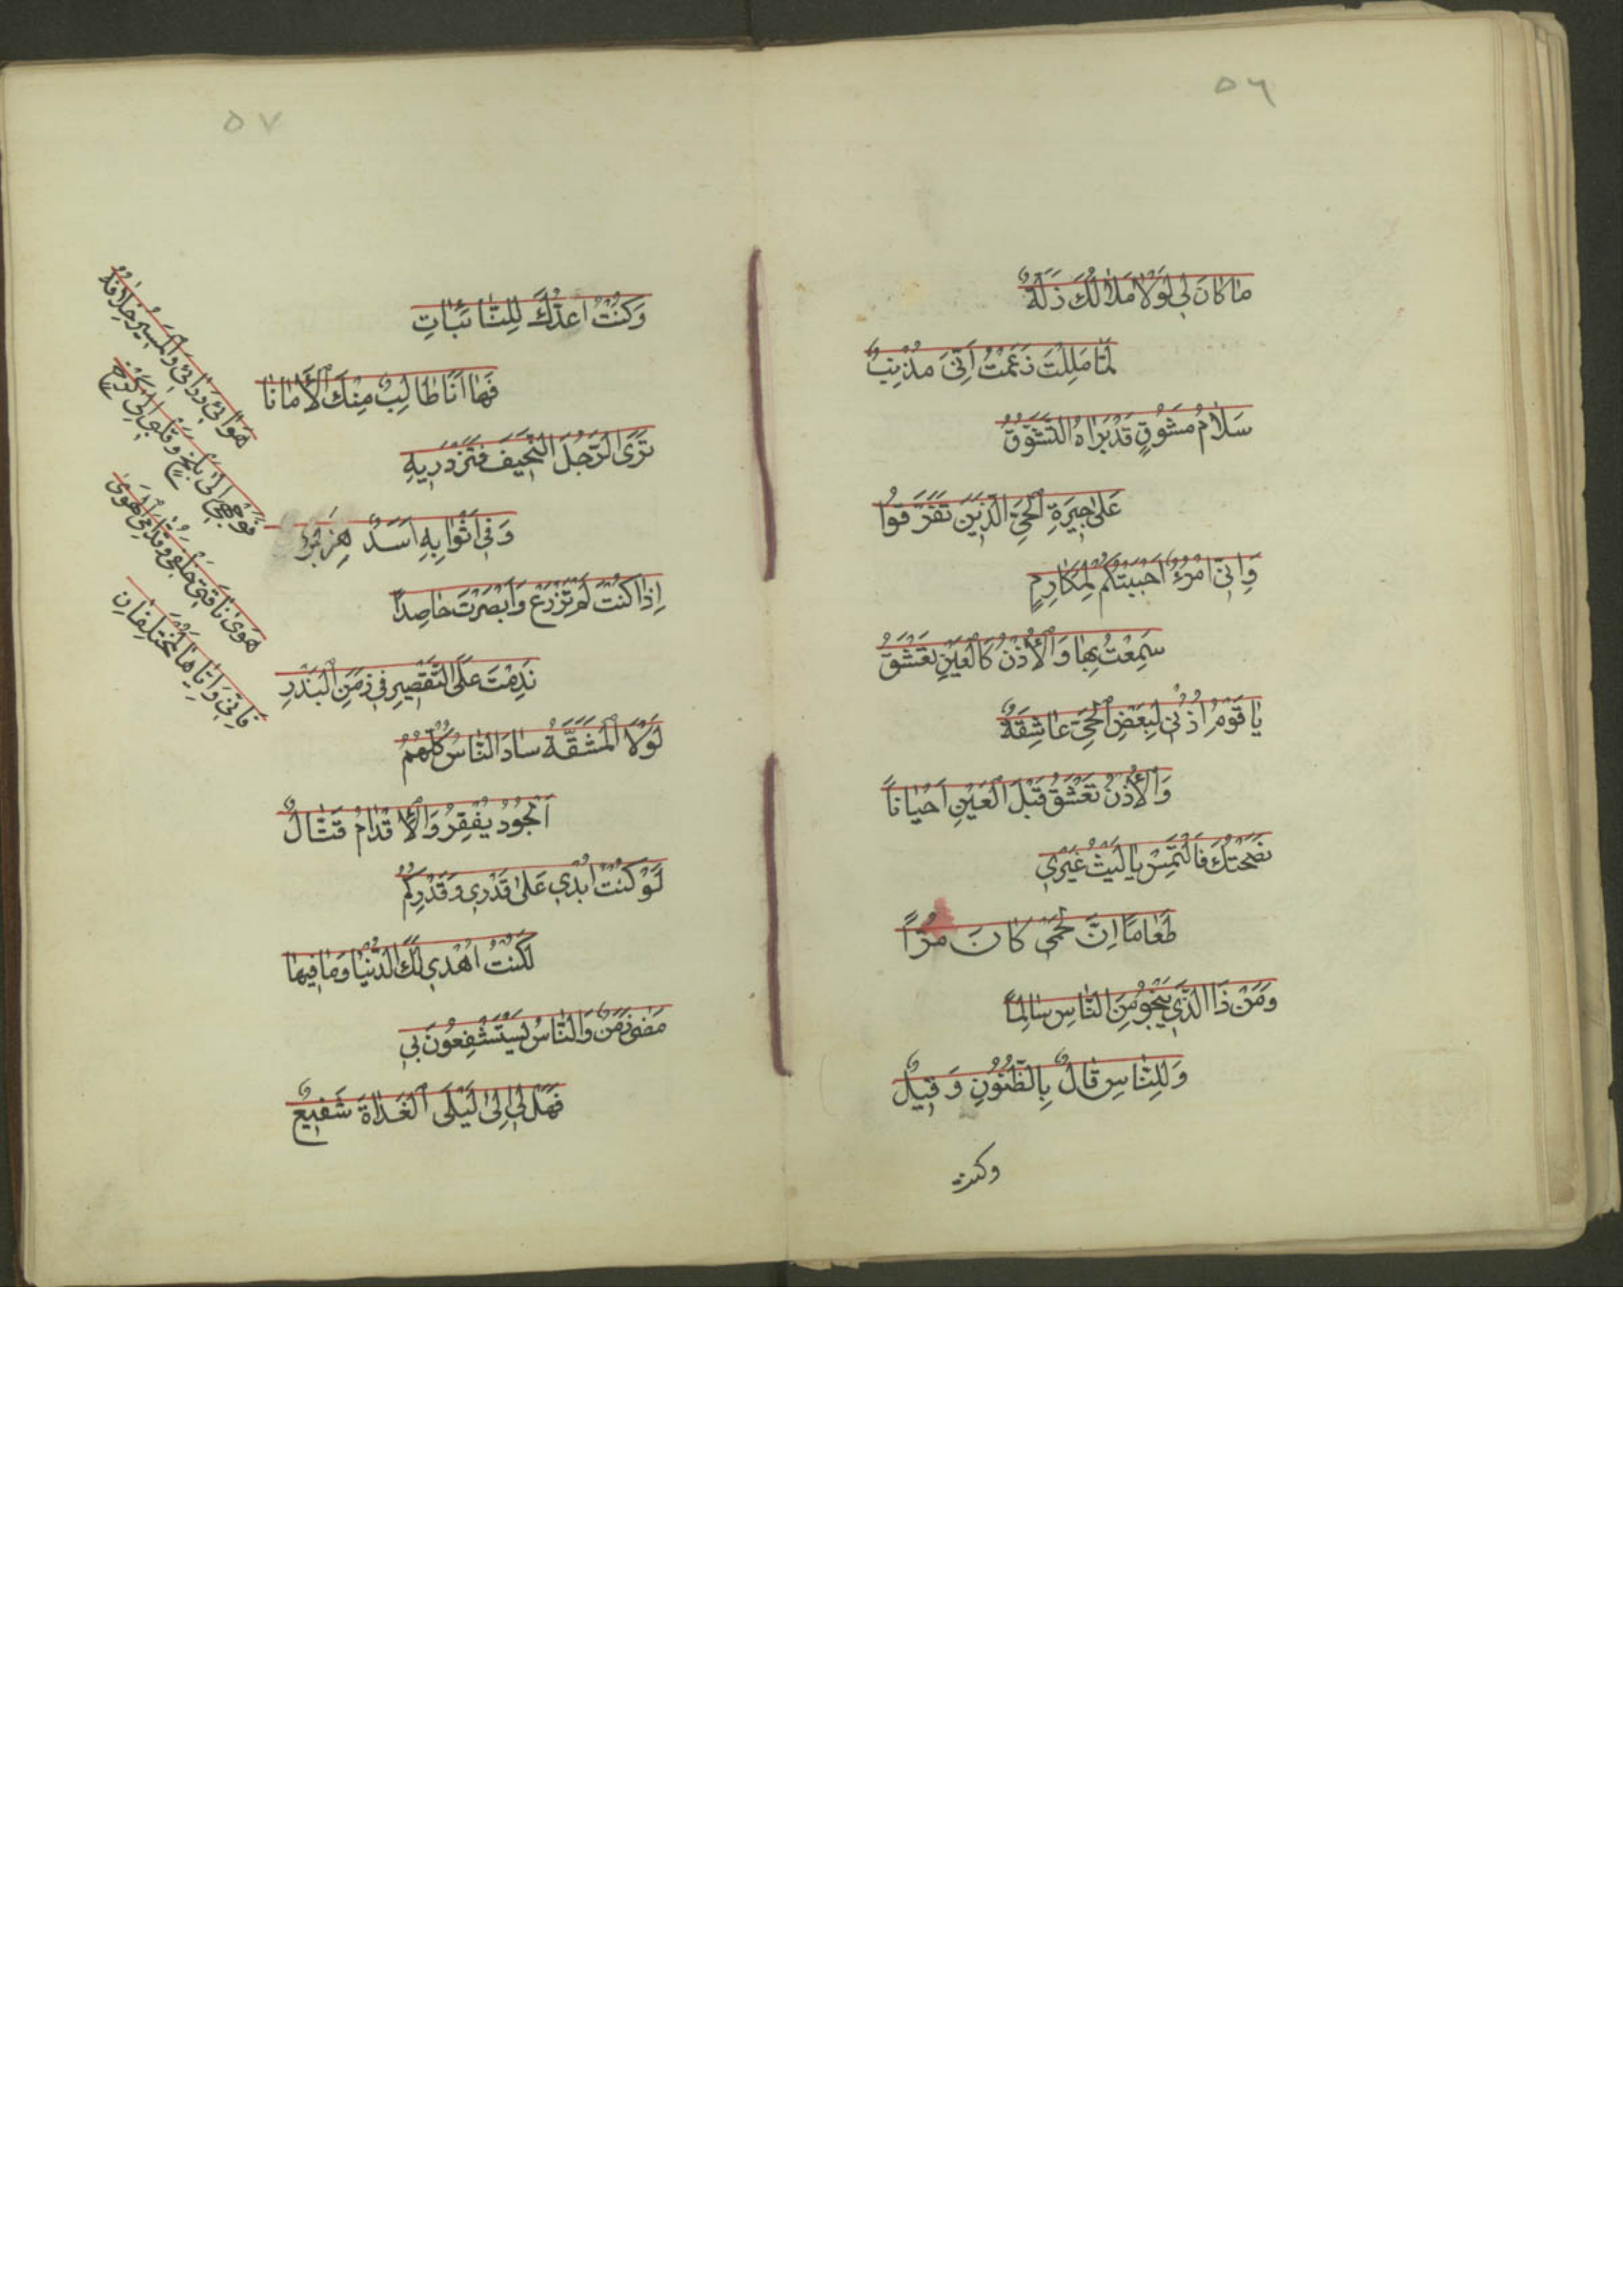 ٥٦
مَا كَانَ لِي لَوْلَا مَلَالُكَ زَلَّةٌ
لَمَّا مَلِلْتَ زَعَمْتَ اَنِّيَ مُذْنِبٌ
سَلَامُ مَشُوْقٍ قَدْ بَرَاهُ التَّشَوُّقُ
عَلَى جِيرَةِ الْحَيِّ الَّذِيْنَ تَفَرَّقُوا
وَاِنِّي امْرُؤٌ اَحْبَبْتُكُمْ لِمَكَارِمٍ
سَمِعْتُ بِهَا وَالْأُذْنُ كَالْعَيْنِ تَعْشَقُ
يَا قَوْمُ اُذْنِي لِبَعْضِ الْحَيِّ عَاشِقَةٌ
وَالْأُذْنُ تَعْشَقُ قَبْلَ الْعَيْنِ اَحْيَانًا
نَصَحْتُكَ فَالْتَمِسْ يَا لَيْثُ غَيْرِي
طَعَامًا اِنَّ لَحْمِي كَانَ مُرًّا
وَمَنْ ذَا الَّذِي يَنْجُوْ مِنَ النَّاسِ سَالِمًا
وَلِلنَّاسِ قَالٌ بِالظُّنُوْنِ وَقِيلٌ
وكنت
٥٧
وَكُنْتُ اَعُدُّكَ لِلنَّائِبَاتِ
فَهَا اَنَا طَالِبٌ مِنْكَ الْأَمَانَا
تَرَى الرَّجُلَ النَّحِيفَ فَتَزْدَرِيهِ
وَفِي اَثْوَابِهِ اَسَدٌ هِزَبْرٌ
اِذَا كُنْتَ لَمْ تَزْرَعْ وَاَبْصَرْتَ حَاصِدًا
نَدِمْتَ عَلَى التَّقْصِيرِ فِي زَمَنِ الْبَذْرِ
لَوْلَا الْمَشَقَّةُ سَادَ النَّاسُ كُلُّهُمُ
اَلْجُوْدُ يُفْقِرُ وَالْأِقْدَامُ قَتَّالٌ
لَوْ كُنْتُ اُهْدِي عَلَى قَدْرِي وَقَدْرِكُمُ
لَكُنْتُ اُهْدِي لَكَ الدُّنْيَا وَمَا فِيهَا
مَضَى زَمَنٌ وَالنَّاسُ يَسْتَشْفِعُوْنَ بِي
فَهَلْ لِي اِلَى لَيْلَى الْغَدَاةَ شَفِيعٌ
هَوَائِي وَرَائِي وَالْمَسِيرُ خِلَافَهُ
فَوَجْهِي اِلَى بَلْخٍ وَقَلْبِي اِلَى كَرْخٍ
هَوَى نَاقَتِي خَلْفِي وَقُدَّامِيَ الْهَوَى
فَاِنِّي وَاِيَّاهَا لَمُخْتَلِفَانِ